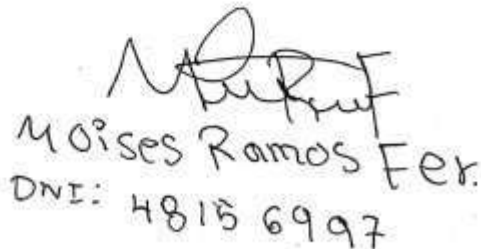 Moises Ramos Fer.
DNI: 48156997